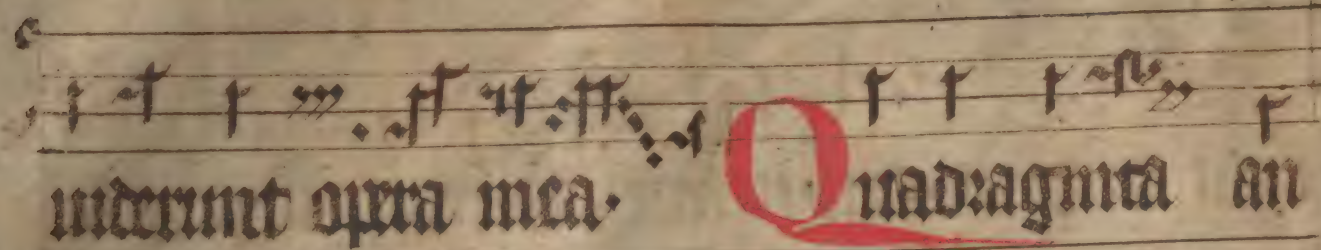 uiderunt opera mea. Quadraginta an